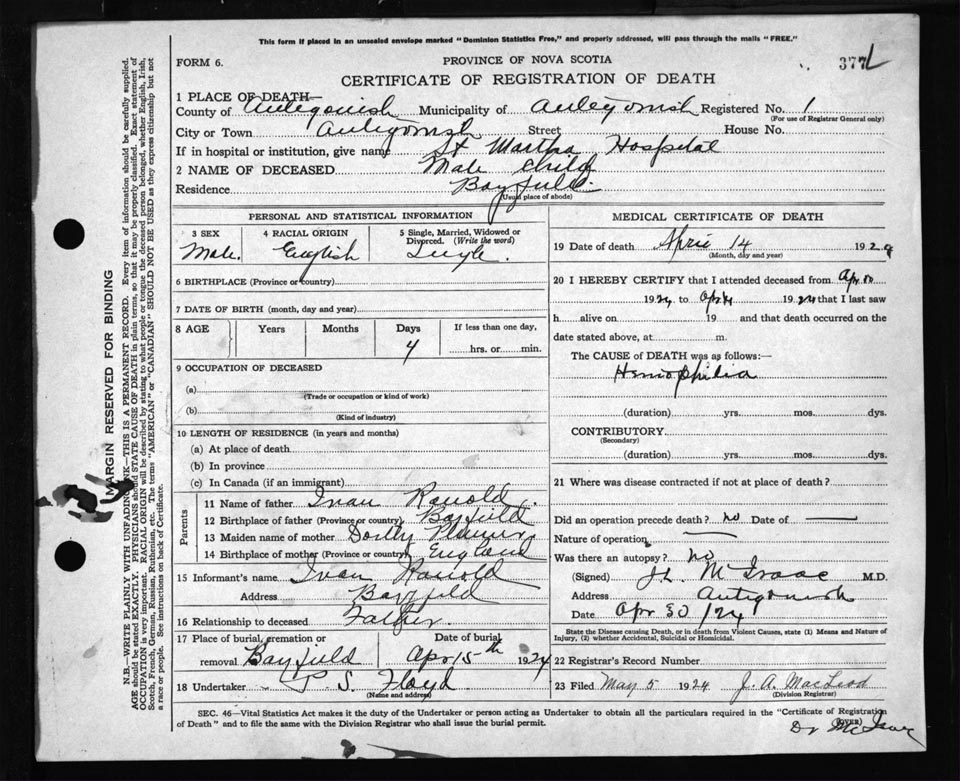 This form if placed in an unsealed envelope marked "Dominion Statistics Free," and properly addressed, will pass through the mails "FREE."
FORM 6.
PROVINCE OF NOVA SCOTIA
377
CERTIFICATE OF REGISTRATION OF DEATH
1 PLACE OF DEATH—
County of Antigonish Municipality of Antigonish Registered No. 1
(For use of Registrar General only)
City or Town Antigonish Street House No.
If in hospital or institution, give name St Martha Hospital
2 NAME OF DECEASED Male child
Residence Bayfield.
(Usual place of abode)
PERSONAL AND STATISTICAL INFORMATION
3 SEX
Male.
4 RACIAL ORIGIN
English
5 Single, Married, Widowed or Divorced. (Write the word)
Single.
6 BIRTHPLACE (Province or country)
7 DATE OF BIRTH (month, day and year)
8 AGE Years Months Days If less than one day,
4 hrs. or min.
9 OCCUPATION OF DECEASED
(a)
(Trade or occupation or kind of work)
(b)
(Kind of industry)
10 LENGTH OF RESIDENCE (in years and months)
(a) At place of death
(b) In province
(c) In Canada (if an immigrant)
Parents
11 Name of father Ivan Ranold
12 Birthplace of father (Province or country) Bayfield
13 Maiden name of mother
14 Birthplace of mother (Province or country) England
15 Informant's name Ivan Ranold
Address Bayfield
16 Relationship to deceased Father.
17 Place of burial, cremation or Date of burial
removal Bayfield Apr 15th 1924
18 Undertaker P. S. Floyd
(Name and address)
MEDICAL CERTIFICATE OF DEATH
19 Date of death April 14 192
(Month, day and year)
20 I HEREBY CERTIFY that I attended deceased from Apr 10
1924 to Apr 14 1924 that I last saw
h alive on 19 and that death occurred on the
date stated above, at m.
The CAUSE of DEATH was as follows:—
Hemophilia
(duration) yrs. mos. dys.
CONTRIBUTORY
(Secondary)
(duration) yrs. mos. dys.
21 Where was disease contracted if not at place of death?
Did an operation precede death? No Date of —
Nature of operation —
Was there an autopsy? No
(Signed) McIsaac M.D.
Address Antigonish
Date Apr 30 /24
State the Disease causing Death, or in death from Violent Causes, state (1) Means and Nature of Injury, (2) whether Accidental, Suicidal or Homicidal.
22 Registrar's Record Number
23 Filed May 5 1924 J. A. MacLeod
(Division Registrar)
SEC. 46—Vital Statistics Act makes it the duty of the Undertaker or person acting as Undertaker to obtain all the particulars required in the "Certificate of Registration
of Death" and to file the same with the Division Registrar who shall issue the burial permit.
(OVER)
Dr McIsaac
MARGIN RESERVED FOR BINDING
N.B.—WRITE PLAINLY WITH UNFADING INK—THIS IS A PERMANENT RECORD. Every item of information should be carefully supplied.
AGE should be stated EXACTLY. PHYSICIANS should STATE CAUSE OF DEATH in plain terms, so that it may be properly classified. Exact statement of
OCCUPATION is very important. RACIAL ORIGIN will be described by stating to what people or tongue the deceased person belonged, whether English, Irish,
Scotch, French, German, Russian, Ruthenian, etc. The terms "AMERICAN" or "CANADIAN" SHOULD NOT BE USED as they express citizenship but not
a race or people. See instructions on back of Certificate.